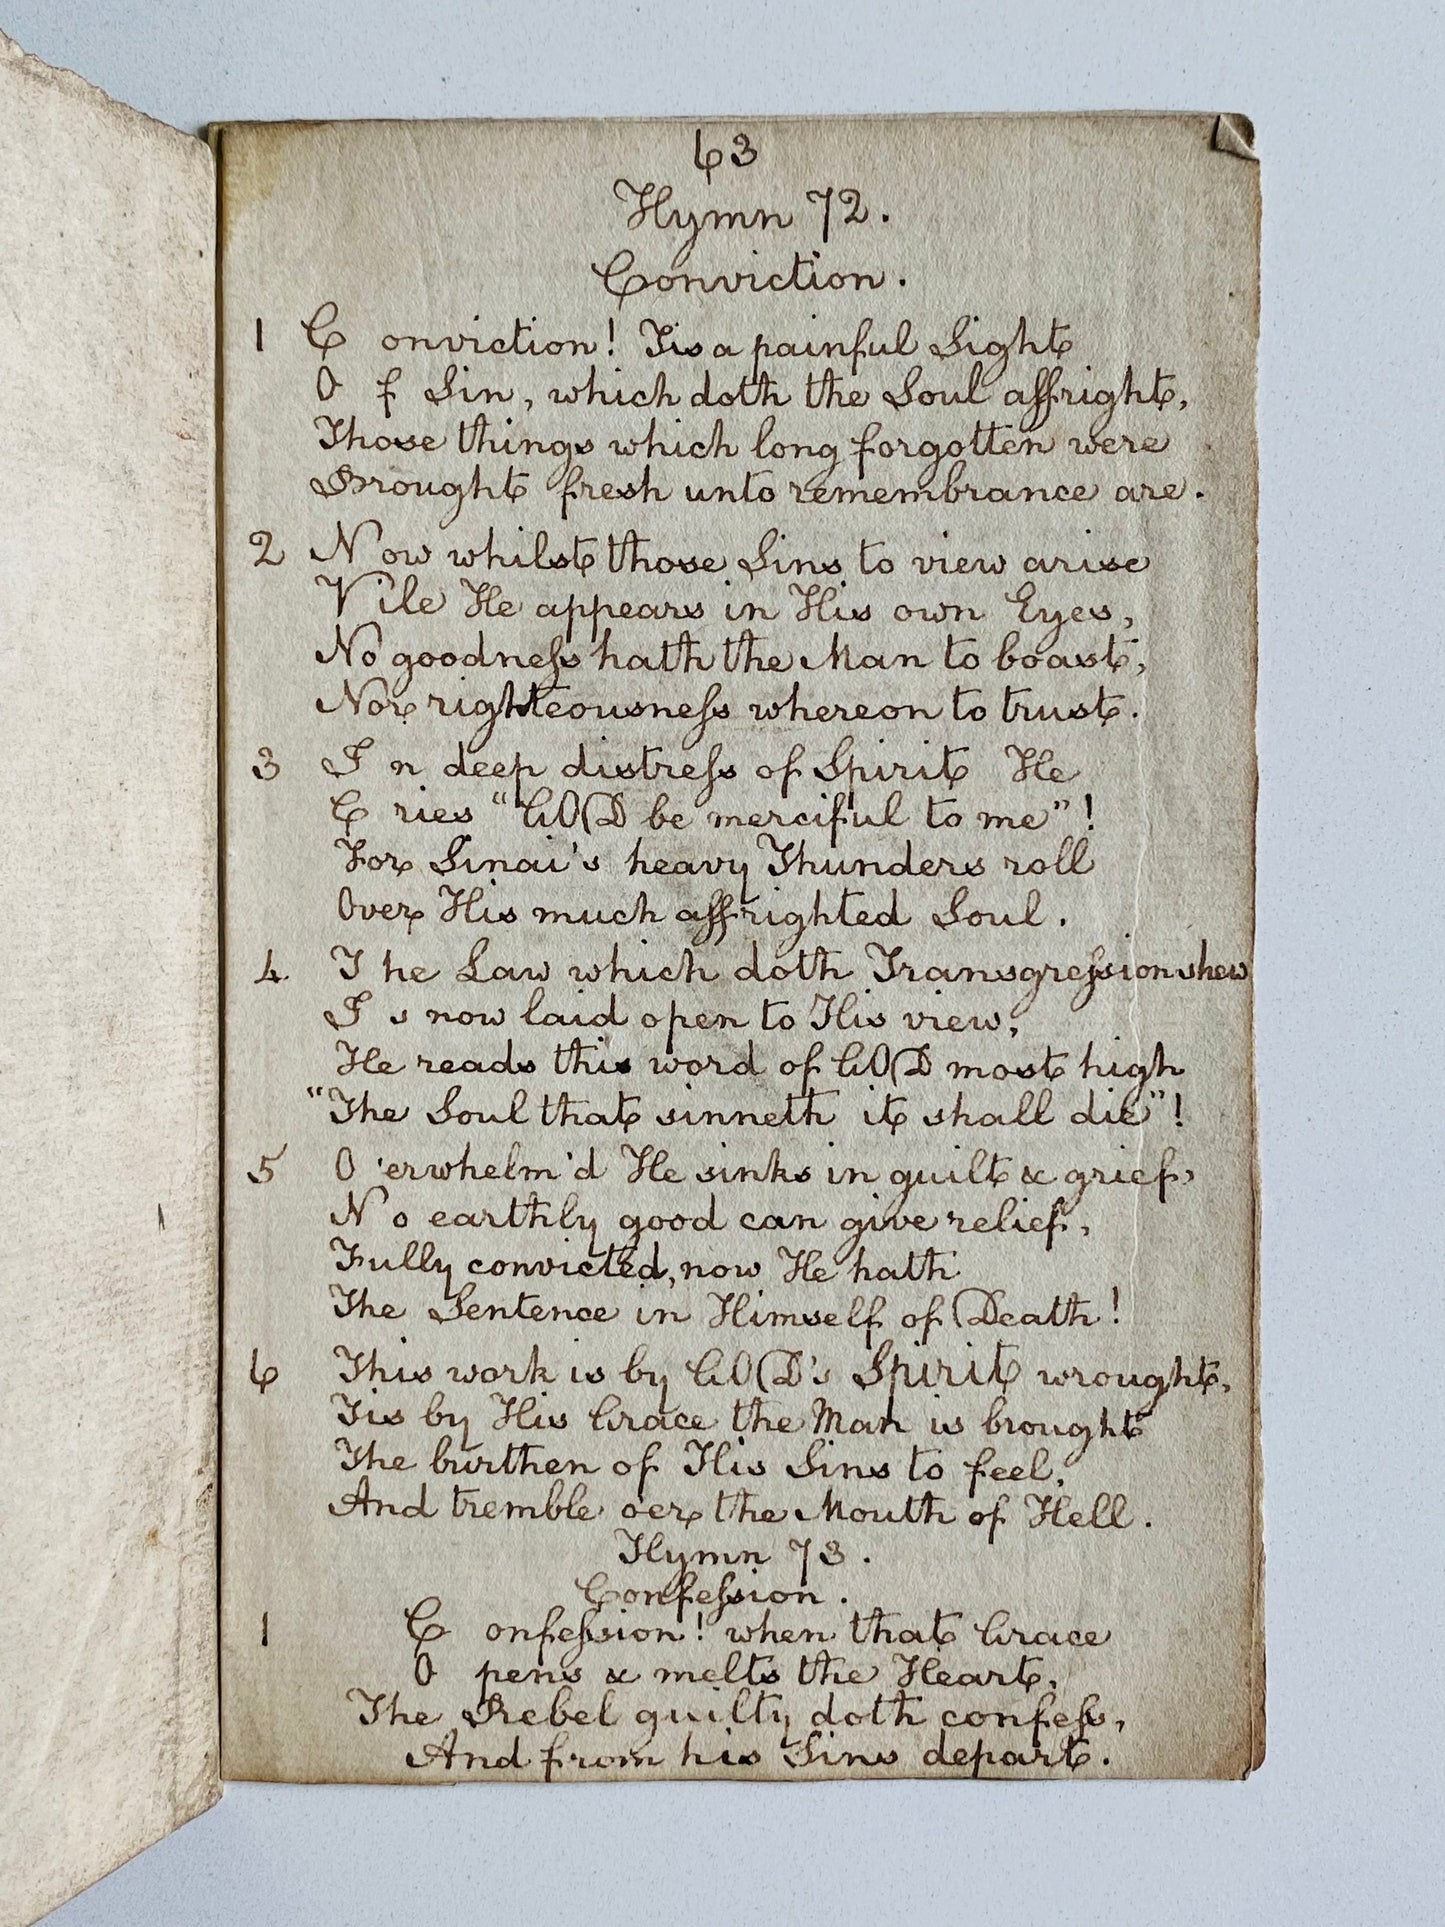 63
Hymn 72.
Conviction.
1 Conviction! Tis a painful Sight
Of Sin, which doth the Soul affright,
Those things which long forgotten were
Brought fresh unto remembrance are.
2 Now whilst those Sins to view arise
Vile He appears in His own Eyes,
No goodneſs hath the Man to boast,
Nor righteousneſs whereon to trust.
3 In deep distreſs of Spirit He
Cries "GOD be merciful to me"!
For Sinai's heavy Thunders roll
Over His much affrighted Soul.
4 The Law which doth Transgreſsion shew
Is now laid open to His view,
He reads this word of GOD most high
"The Soul that sinneth it shall die"!
5 O'erwhelm'd He sinks in guilt & grief,
No earthly good can give relief,
Fully convicted, now He hath
The Sentence in Himself of Death!
6 This work is by GOD's Spirit wrought,
Tis by His Grace the Man is brought
The burthen of His Sins to feel,
And tremble oer the Mouth of Hell.
Hymn 73.
Confeſsion.
1 Confeſsion! when that Grace
Opens & melts the Heart,
The Rebel guilty doth confeſs,
And from his Sins depart.